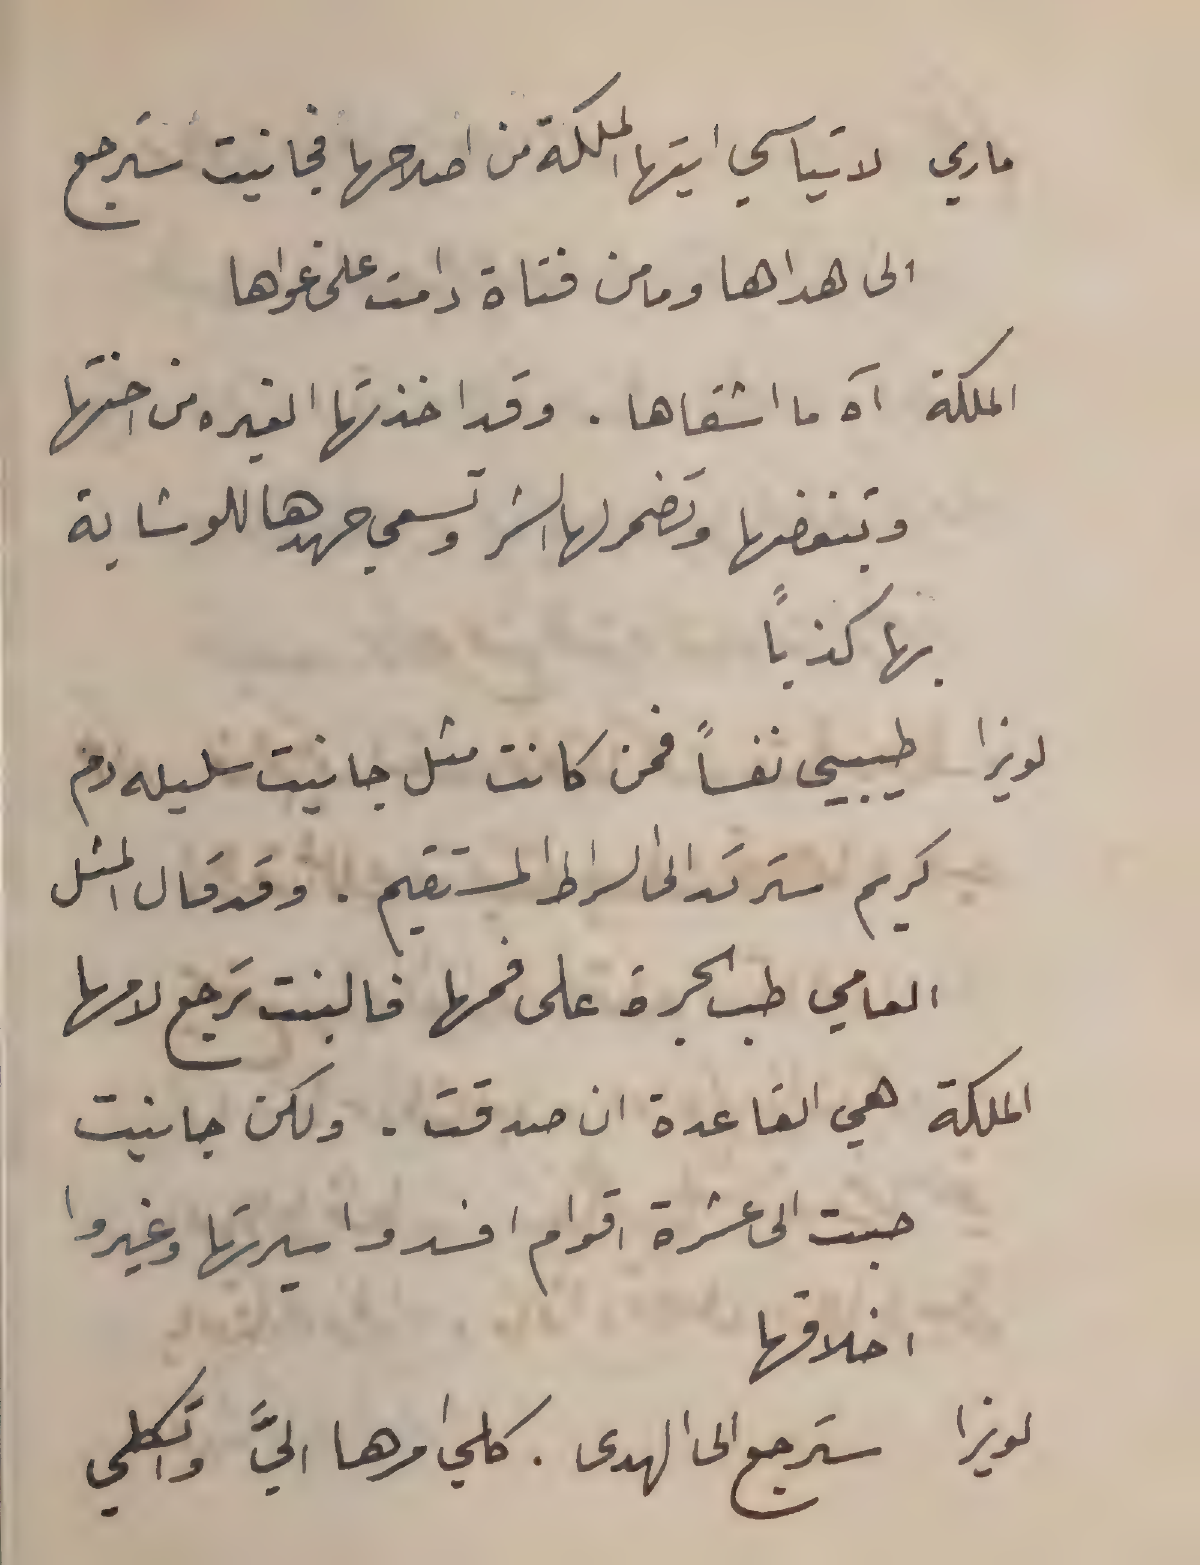 ماري لا تيأسي ايتها الملكة من اصلاحها فجانيت سترجع
الى هداها وما من فتاة دامت على غواها
الملكة آه ما اشقاها . وقد اخذتها الغيره من اختها
وتبغضها وتضمر لها الشر وتسعى جهدها للوشاية
بها كذباً
لويزا طيبي نفساً فمن كانت مثل جانيت سليله دم
كريم سترتد الى السراط المستقيم . وقد قال المثل
العامي طب الجرة على فمها فالبنت ترجع لامها
الملكة هي القاعدة ان صدقت . ولكن جانيت
صبت الى عشرة اقوام افسدوا سيرتها وغيروا
اخلاقها
لويزا سترجع الى الهدى . كلي امرها اليَّ واتكلي